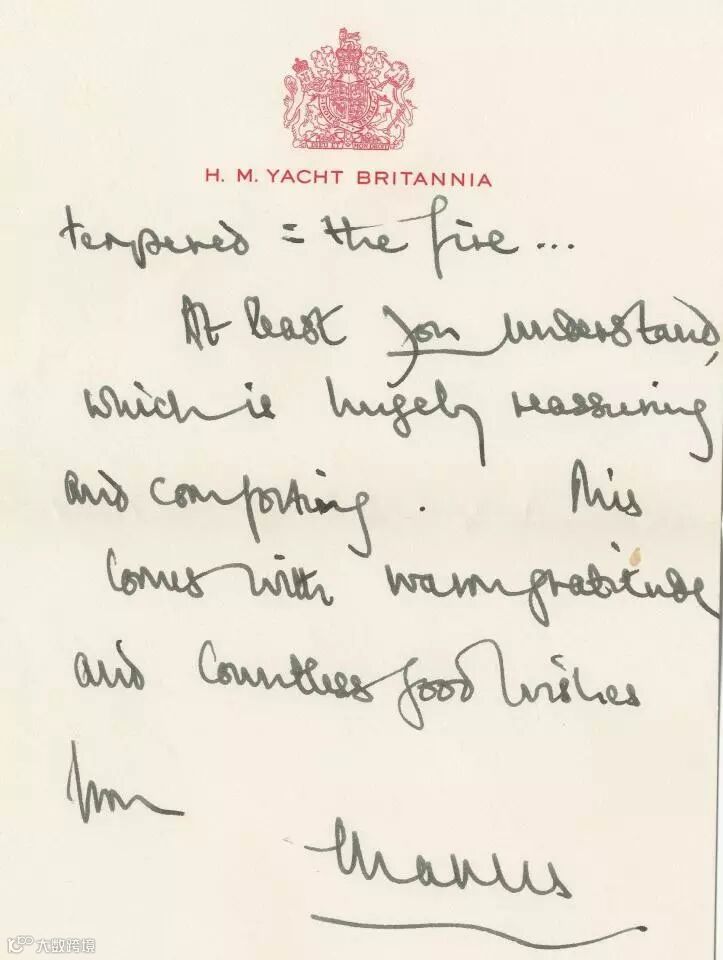 DIEU ET MON DROIT
H. M. YACHT BRITANNIA
tempered = the fire ...
At least you understand,
which is hugely reassuring
and comforting. This
comes with warm gratitude
and countless good wishes
from
Charles
大数跨境